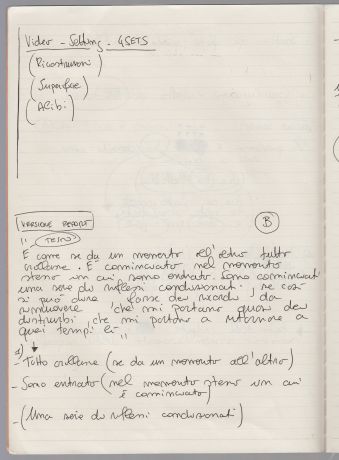 Video - Setting - 4SETS
(Ricostruzioni)
(Superfice)
(Alibi)
VERSIONE REPORT
B
" TESTO
È come se da un momento all'altro tutto
crollasse. È cominciato nel momento
stesso in cui sono entrato. Sono cominciati
una serie di riflessi condizionati, se così
si può dire, forse dei ricordi da
rimuovere che mi portano quasi dei
disturbi, che mi portano a ritornare a
quei tempi là "
1)
- Tutto crollasse (se da un momento all'altro)
- Sono entrato (nel momento stesso in cui
è cominciato)
- (Una serie di riflessi condizionati)